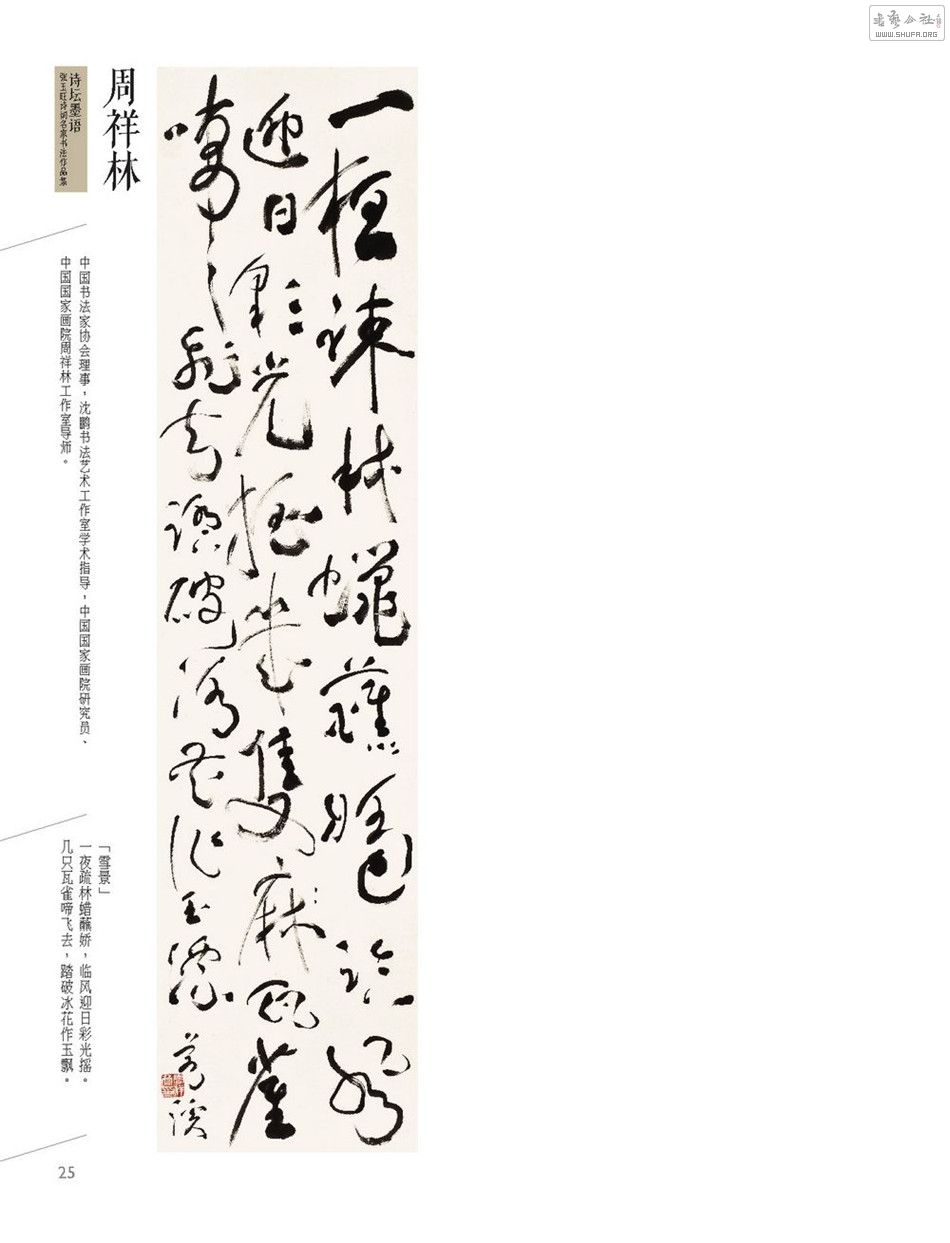 WWW.SHUFA.ORG
一疎林蠟蘸臨
迎日彩光摇隻麻瓦雀
飛去踏破冰花作玉飄
周祥林
诗坛墨语
诗词名家书法作品集
中国书法家协会理事，沈鹏书法艺术工作室学术指导，中国国家画院研究员、
中国国家画院周祥林工作室导师。
「雪景」
一夜疏林蜡蘸娇，临风迎日彩光摇。
几只瓦雀啼飞去，踏破冰花作玉飘。
25